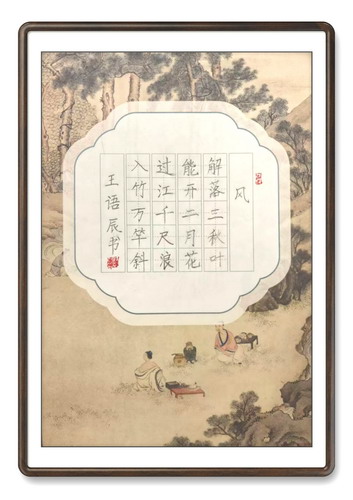 风
解落三秋叶
能开二月花
过江千尺浪
入竹万竿斜
王语辰书